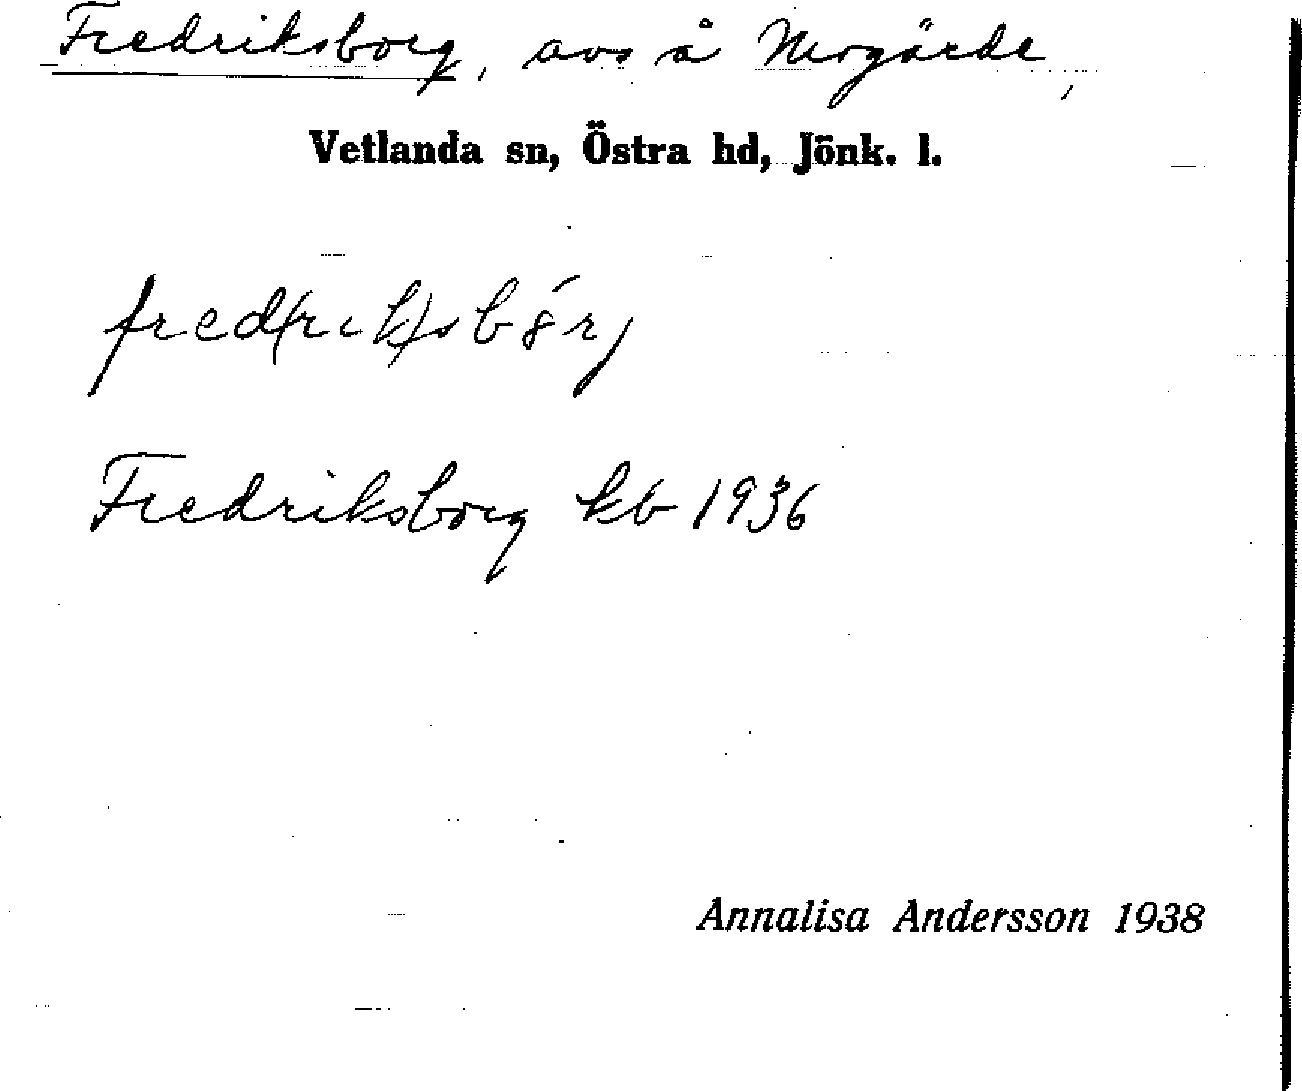 Fredriksborg, avs å Nergärde,
Vetlanda sn, Östra hd, Jönk. l.
fred(rik)sbór
Fredriksborg kb 1936
Annalisa Andersson 1938